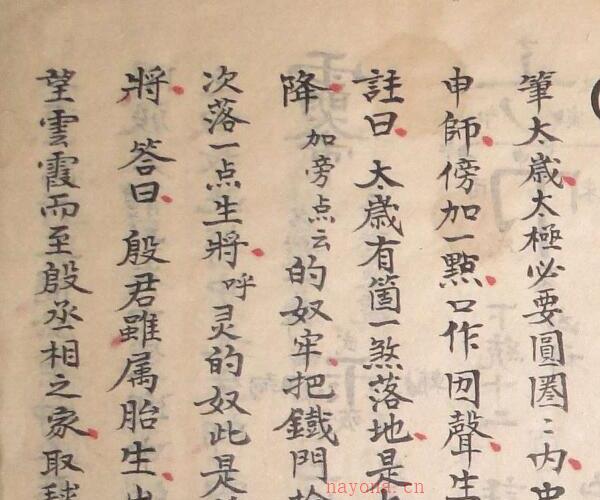 筆太歳太極必要圓圏〻内
申師傍加一點口作囝聲生
註曰太歳有箇一煞落地是
降加旁点云的奴牢把鐵門
次落一点生將呼灵的奴此是
將答曰殷君雖属胎生
望雲霞而至殷丞相之家取
nayona.cn